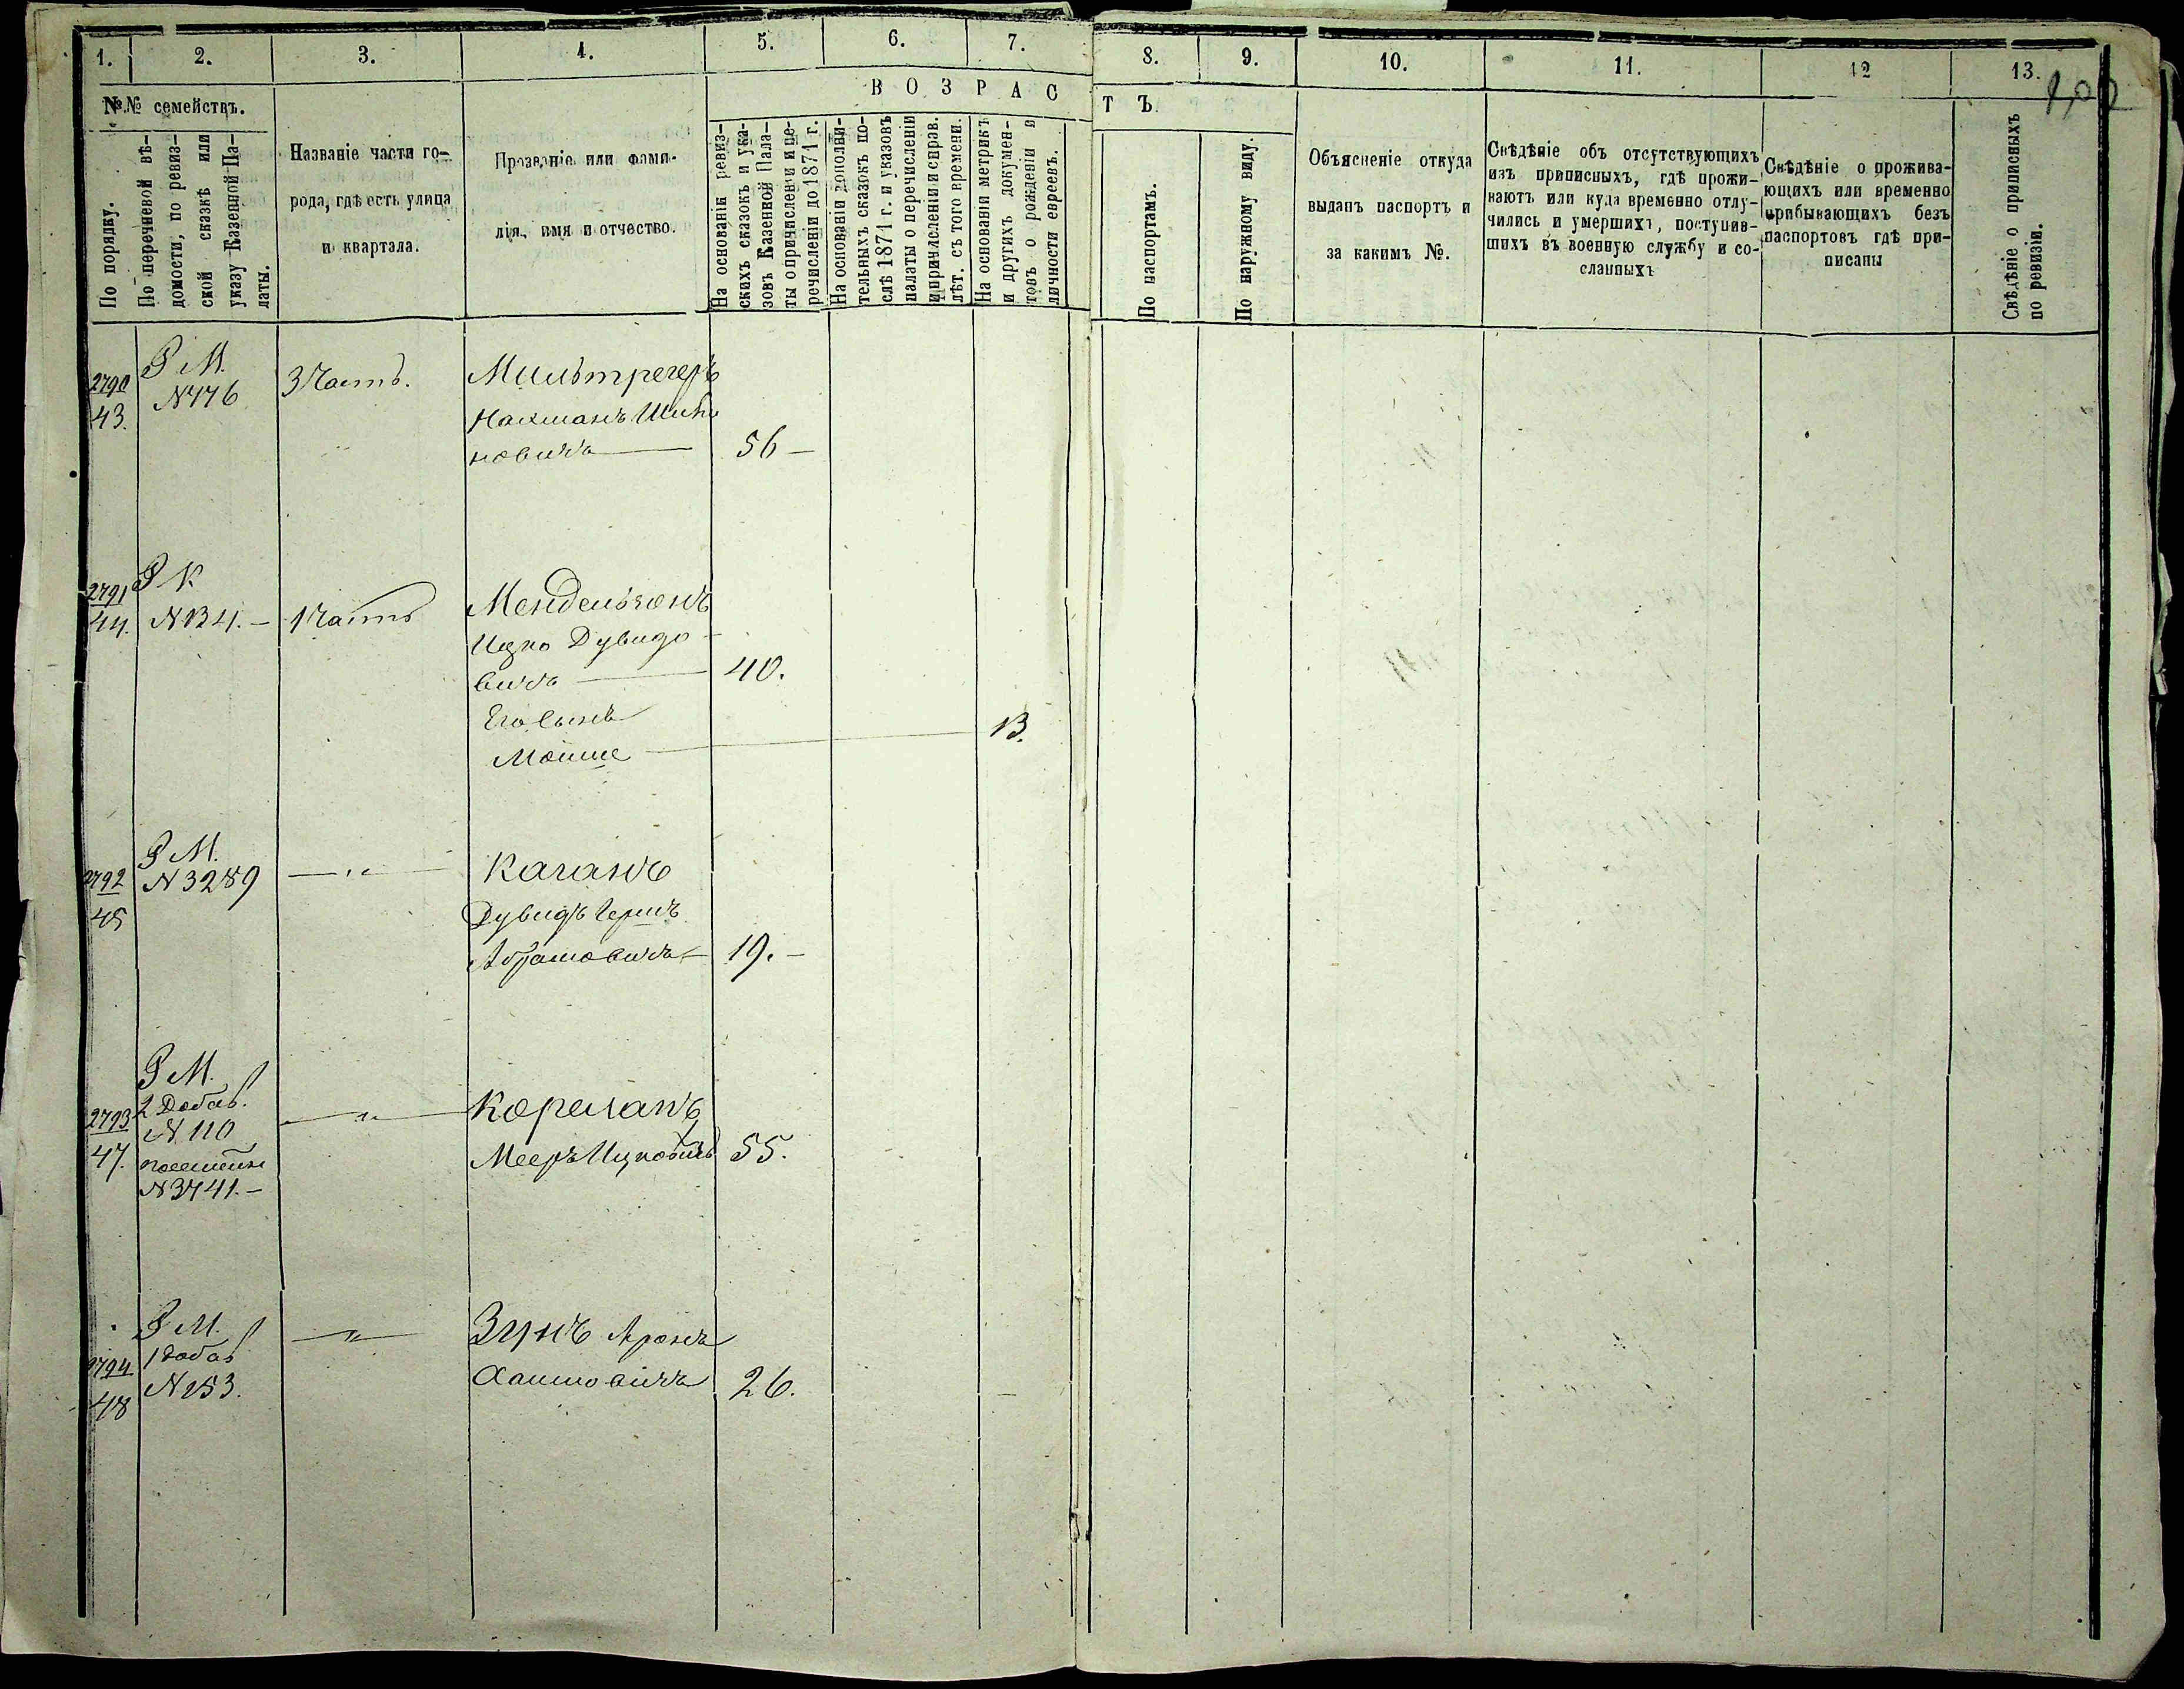 1.
2.
3.
4.
5.
6.
7.
8.
9.
10.
11.
12
13.
№№ семействъ.
По порядку.
По перечневой вѣ-
домости, по ревиз-
ской сказкѣ или
указу Казенной Па-
латы.
Названіе части го-
рода, гдѣ есть улица
и квартала.
Прозваніе или фами-
лія, имя и отчество.
ВОЗРАС
ТЪ.
На основаніи ревиз-
скихъ сказокъ и ука-
зовъ Казенной Пала-
ты о причисленіи и пе-
речисленіи до 1871 г.
На основаніи дополни-
тельныхъ сказокъ по-
слѣ 1871 г. и указовъ
палаты о перечисленіи
и причисленіи и справ.
лѣт. съ того времени.
На основаніи метрикъ
и другихъ докумен-
товъ о рожденіи и
личности евреевъ.
По паспортамъ.
По наружному виду.
Объясненіе откуда
выданъ паспортъ и
за какимъ №.
Свѣдѣніе объ отсутствующихъ
изъ приписныхъ, гдѣ прожи-
ваютъ или куда временно отлу-
чились и умершихъ, поступив-
шихъ въ военную службу и со-
сланныхъ
Свѣдѣніе о прожива-
ющихъ или временно
прибывающихъ безъ
паспортовъ гдѣ при-
писаны
Свѣдѣніе о приписныхъ
по ревизіи.
2790
43.
Р М.
N 776
3 Часть.
Мильтрегеръ
Нахманъ
новичъ
56 —
2791
44.
Р К
N 134. —
1 Часть
Мендельзонъ
Ицко Дувидо-
вичъ
40.
Его сынъ
Мошше
13.
2792
45
Р М.
N 3289
— " —
Каганъ
Дувидъ Гершъ
Абрамовичъ
19. —
2793
47.
Р М.
2 Добав.
N 110
N 3741. —
— " —
Корсланъ
Мееръ Ицковичъ
55.
2794
48
Р М.
1 добав
N 253.
— " —
Зунъ Аронъ
Хаимовичъ
26.